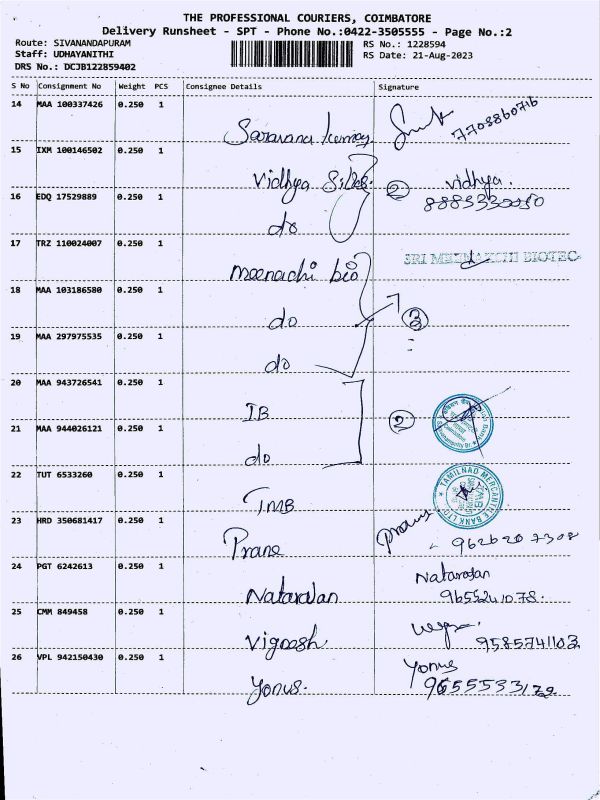 THE PROFESSIONAL COURIERS, COIMBATORE
Delivery Runsheet - SPT - Phone No.:0422-3505555 - Page No.:2
Route: SIVANANDAPURAM RS No.: 1228594
Staff: UDHAYANITHI RS Date: 21-Aug-2023
DRS No.: DCJB122859402
S No Consignment No Weight PCS Consignee Details Signature
14 MAA 100337426 0.250 1
Saravana kumar 7708860716
15 IXM 100146502 0.250 1
Vidhya Silks. 2 vidhya.
16 EDQ 17529889 0.250 1 8885330050
do
17 TRZ 110024007 0.250 1
meenachi bio SRI MEENAKCHI BIOTEC
18 MAA 103186580 0.250 1
do 3
19 MAA 297975535 0.250 1
do
20 MAA 943726541 0.250 1
IB 2
21 MAA 944026121 0.250 1
do
22 TUT 6533260 0.250 1
TMB TAMILNAD MERCANTILE BANK LTD
23 HRD 350681417 0.250 1
Prane 9626207308
24 PGT 6242613 0.250 1
Natarajan Natarajan
9655241078.
25 CMM 849458 0.250 1
Vignesh 9585741103
26 VPL 942150430 0.250 1
Yonus. Yonus